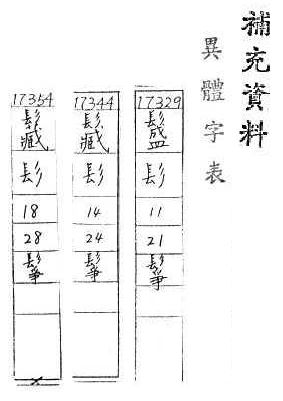 補充資料
異體字表
17329
髟
11
21
鬇
17344
髟
14
24
鬇
17354
髟
18
28
鬇